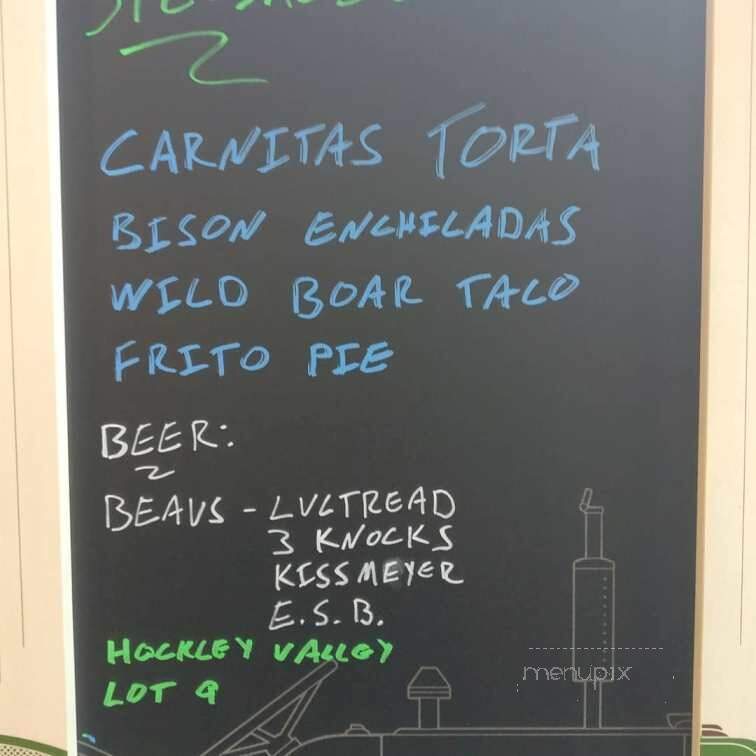 CARNITAS TORTA
BISON ENCHILADAS
WILD BOAR TACO
FRITO PIE
BEER:
BEAUS - LUGTREAD
3 KNOCKS
KISSMEYER
E.S.B.
HOCKLEY VALLEY
LOT 9
menupix